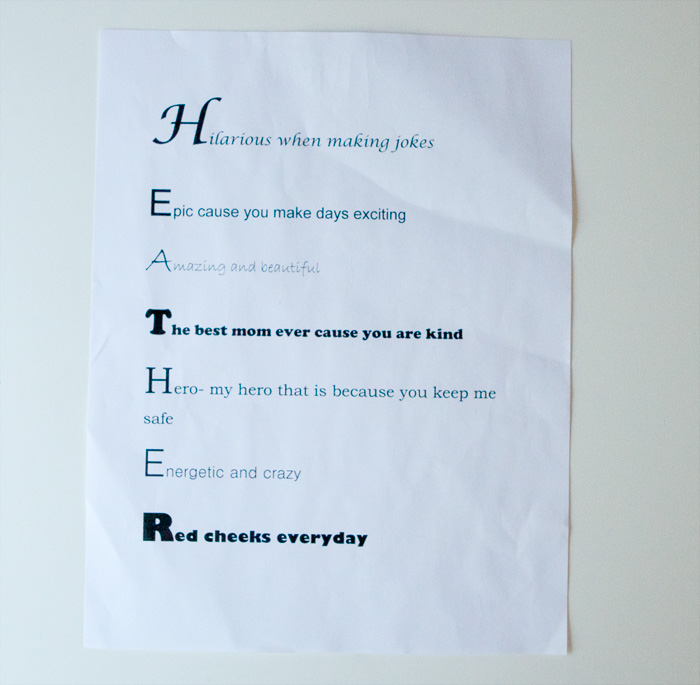 Hilarious when making jokes
Epic cause you make days exciting
Amazing and beautiful
The best mom ever cause you are kind
Hero- my hero that is because you keep me
safe
Energetic and crazy
Red cheeks everyday